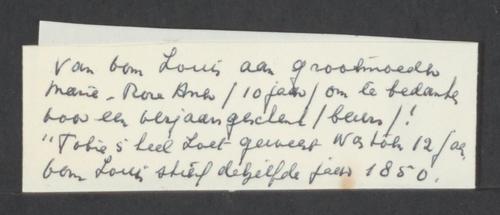 Van bom Louis aan grootmoeder
Marie-Rose / 10 jaar / om te bedanken
voor een verjaargeschenk / beurs /!
"Tobie's heel zoet geweest 12 jaar
bom Louis stierf dezelfde jaar 1850.